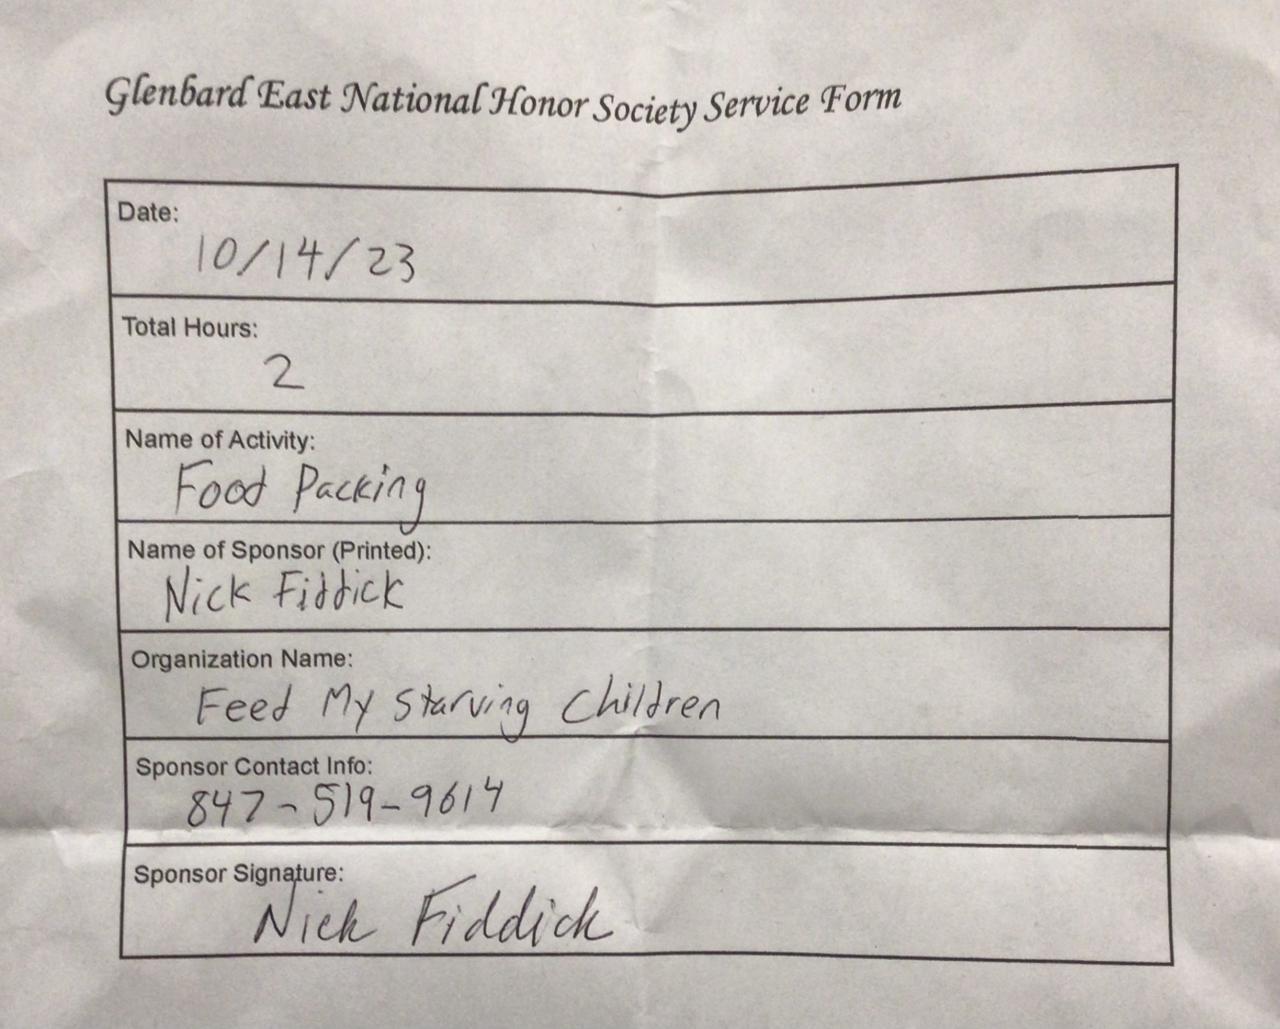 Glenbard East National Honor Society Service Form
Date:
10/14/23
Total Hours:
2
Name of Activity:
Food Packing
Name of Sponsor (Printed):
Nick Fiddick
Organization Name:
Feed My Starving Children
Sponsor Contact Info:
847-519-9614
Sponsor Signature:
Nick Fiddick